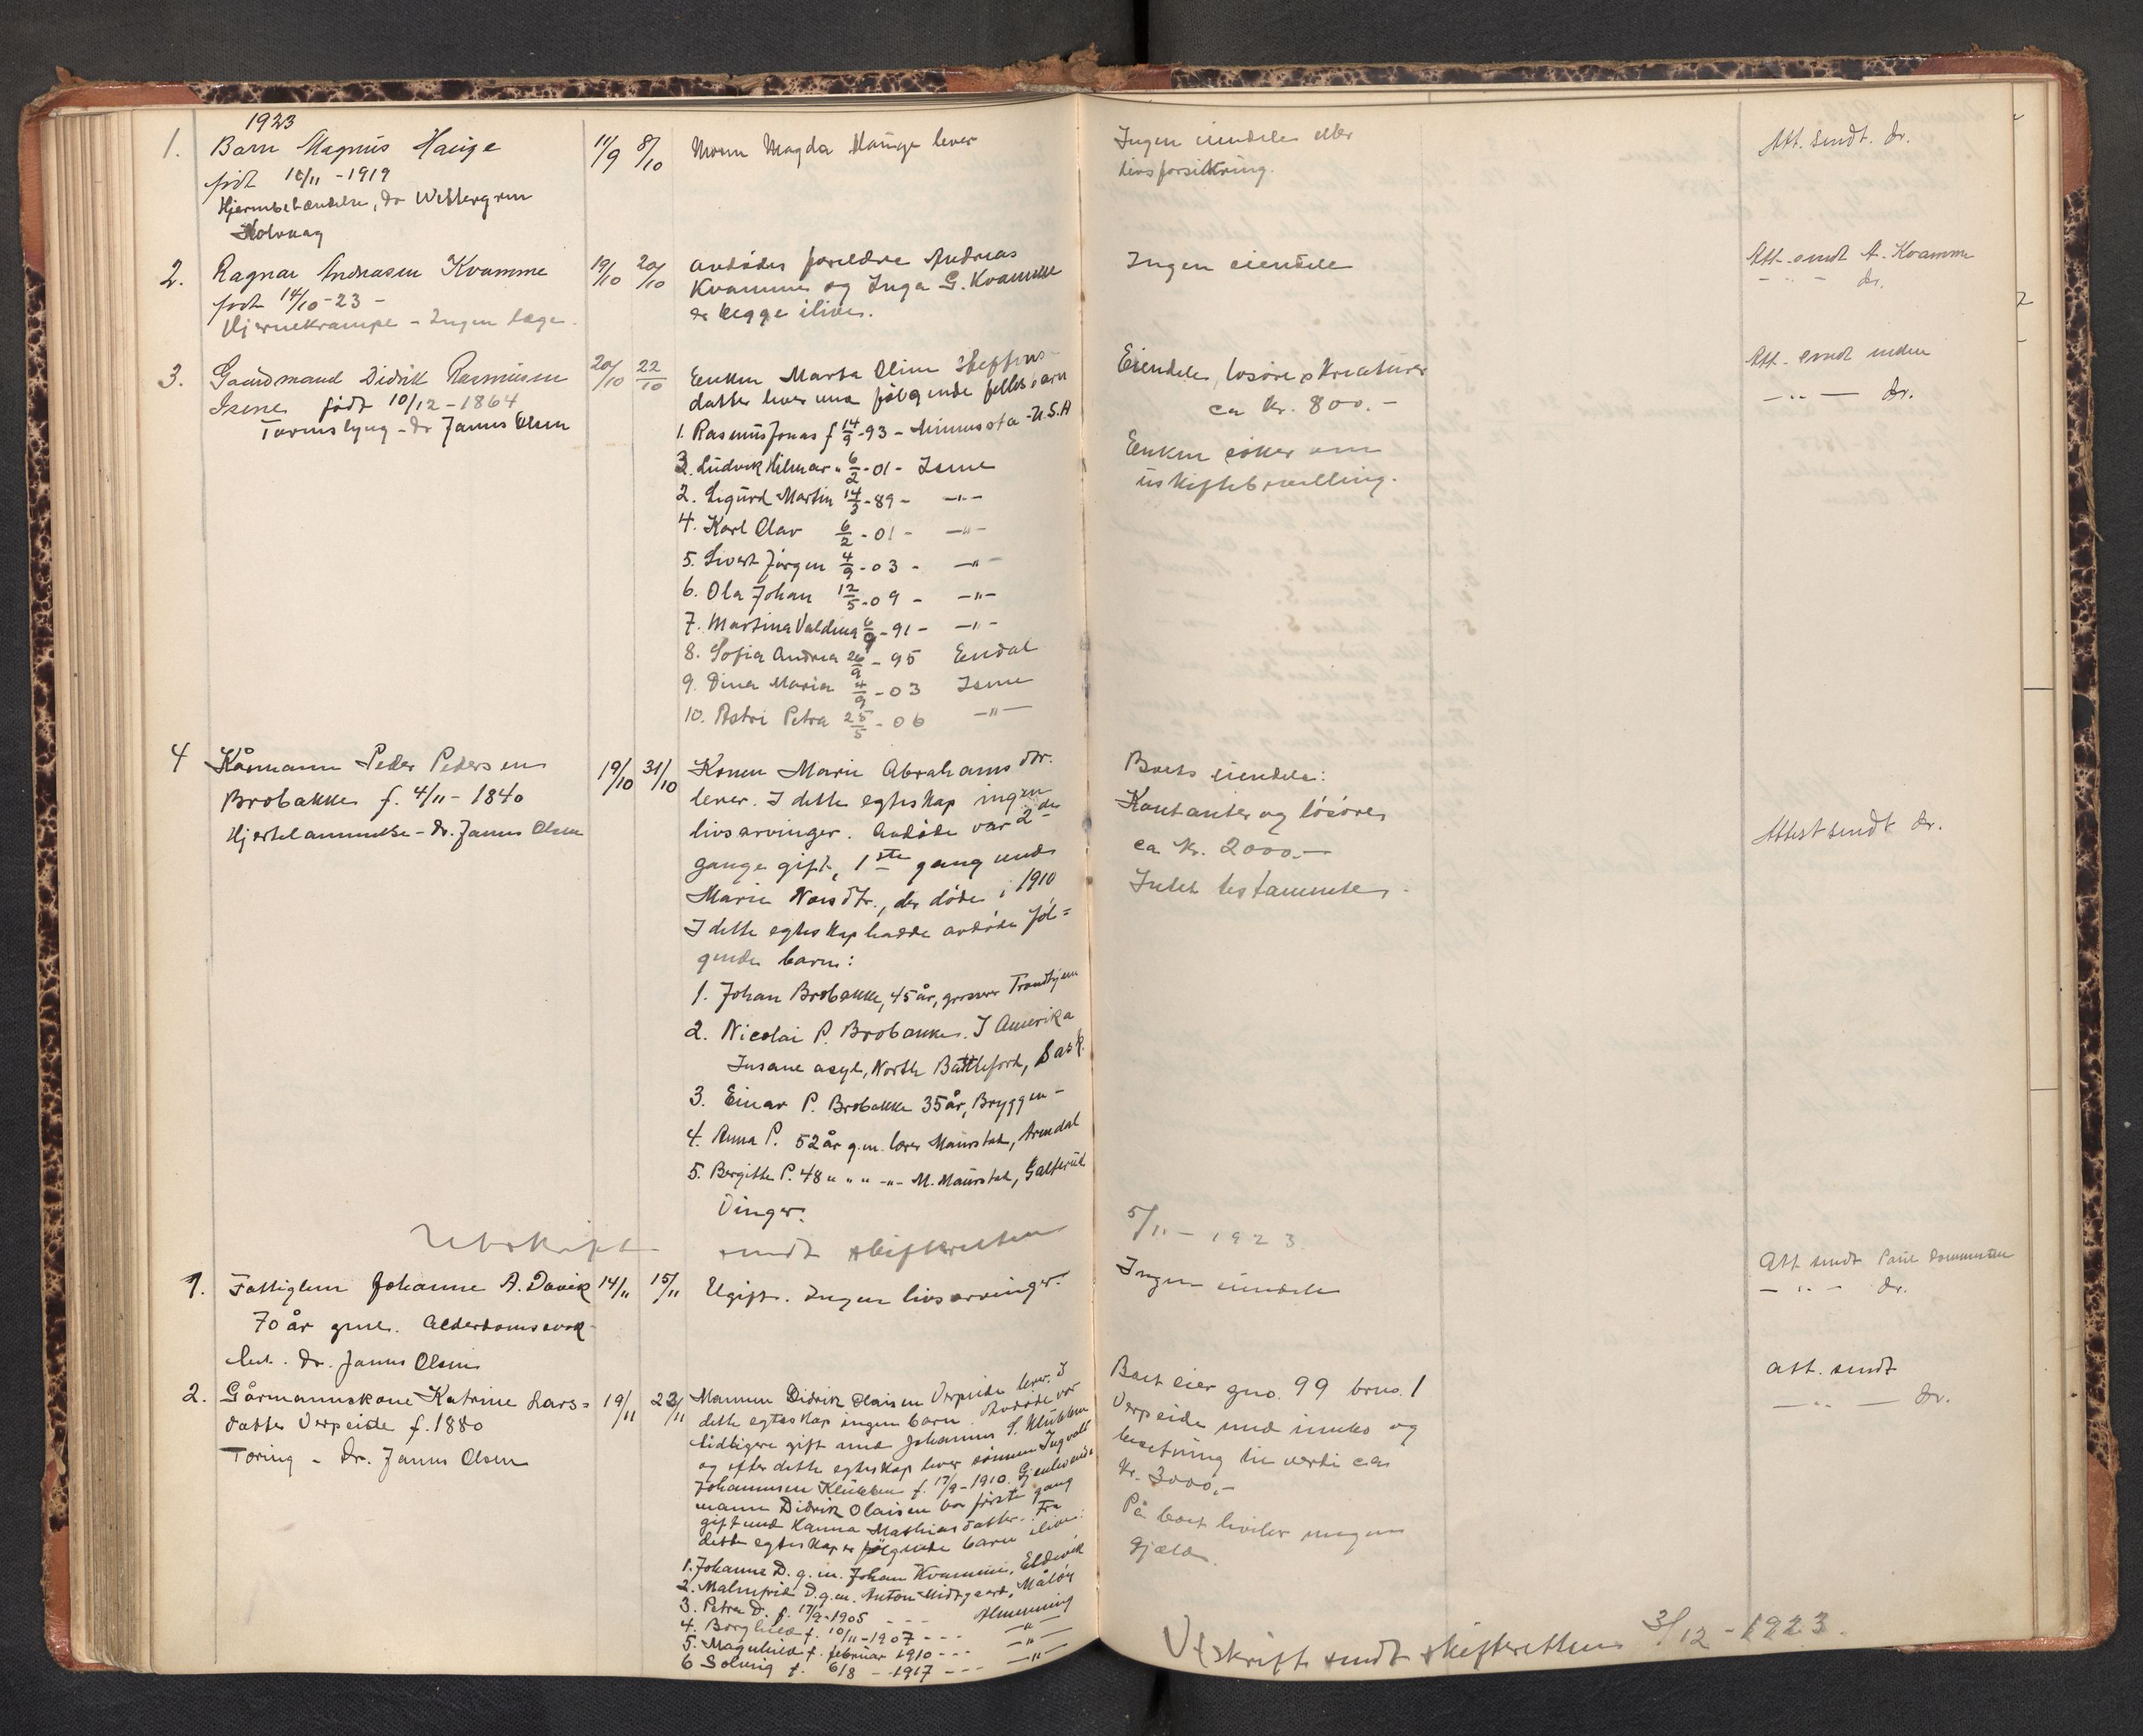 1923
1. Barn Magnus Hauge 11/9 8/10 Moren Magda Hauge lever Ingen eiendele eller Att. sendt. dr.
født 10/11 - 1919 livsforsikring.
Hjernebetændelse, dr Wettergren
Kolvaag
2. Ragnar Andreasen Kvamme 19/10 20/10 avdødes forældre Andreas Ingen eiendele Att. sendt A. Kvamme
født 14/10-23 - Kvamme og Inga G. Kvamme - " - dr.
Hjernekrampe - Ingen læge. er begge ilive.
3. Gaardmand Didrik Rasmussen 20/10 22/10 Enken Marta Oline Steffens- Eiendele, løsøre, kreaturer Att. sendt enken
Isene født 10/12 - 1864 datter lever med følgende fellesbarn ca kr. 800.- - " - dr.
Tarmslyng - dr Jamus Olsen 1. Rasmus Jonas f 14/9-93 - Minnesota - U.S.A
Enken søker om
3. Ludvik Hilmar " 6/2-01- Isene
uskiftebevilling.
2. Sigurd Martin 14/3-89 - -"-
4. Karl Olav 6/2-01- -"-
5. Sivert Jørgen 4/9-03 - -"-
6. Ola Johan 12/5-09 - -"-
7. Martina Valdina 6/9-91- -"-
8. Sofia Andrea 26/9-95 Endal
9. Dina Maria 4/9-03 Isene
10. Astri Petra 25/5-06 -"-
4 Kårmann Peder Pedersen 19/10 31/10 Konen Marie Abrahamsdtr. Boets eiendele:
Brobakke f. 4/11 - 1840 lever. I dette egteskap ingen Kontanter og løsøre,
Hjertelammelse - dr. Jamus Olsen livsarvinger. Avdøde var 2de ca kr. 2000.- Attest sendt dr.
gange gift, 1ste gang med Intet testamente.
Marie Nosdtr., der døde i 1910
I dette egteskap hadde avdøde føl=
gende barn:
1. Johan Brobakke, 45 år, grosserer Trondhjem
2. Nicolai P. Brobakke. I Amerika
Insane asyl, North Battleford, Sask.
3. Einar P. Brobakke 35 år, Bryggen -
4. Anna P. 52 år g.m. lærer Maurstad, Arendal
5. Bergitte P. 48 " " " -"- M. Maurstad, Galterud
Vinger.
Utskrift sendt skifteretten 5/11 - 1923.
1. Fattiglem Johanne A. Davik 14/11 15/11 Ugift. Ingen livsarvinger. Ingen eiendele Att sendt Paul
70 år gml. Alderdomssvak- - " - dr.
het. dr. Jamus Olsen
2. Gårmannskone Katrine Lars= 19/11 22/11 Mannen Didrik Olaisen Verpeide lever. I Boet eier gno. 99 brno. 1 att. sendt
datter Verpeide f. 1880 dette egteskap ingen barn. Avdøde var Verpeide med innbo og - " - dr.
Tæring - Dr. Jamus Olsen tidligere gift med Johannes S. Klubben besetning til verdi ca
og efter dette egteskap lever sønnen Ingvald kr. 3000,-
Johannesen Klubben f. 17/9-1910. Gjenlevende
mann Didrik Olaisen var første gang På boet hviler megen
gift med Hanna Mathiasdatter. Fra gjæld.
dette egteskap er følgende barn ilive:
1. Johanne D. g.m. Johan Kvamme, Eldevik
2. Malmfrid D. g.m. Anton Midtgaard, Måløy
3. Petra D. f. 17/2-1905 - - - Almenning
4. Borghild f. 10/11-1907 - - - -"-
5. Magnhild f. februar 1910 - - - -"-
6 Solveig f. 6/8 - 1917 - - - -"-
Utskrift sendt skifteretten 3/12 - 1923.